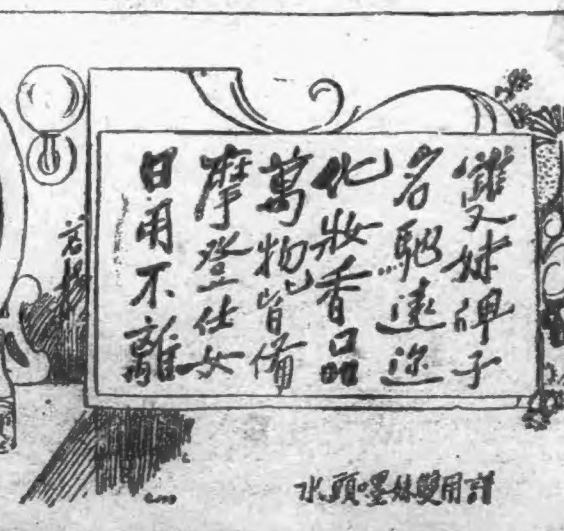 雙妹牌子
名馳遠迩
化妝香品
萬物皆備
摩登仕女
日用不離
請用雙妹嘜頭水